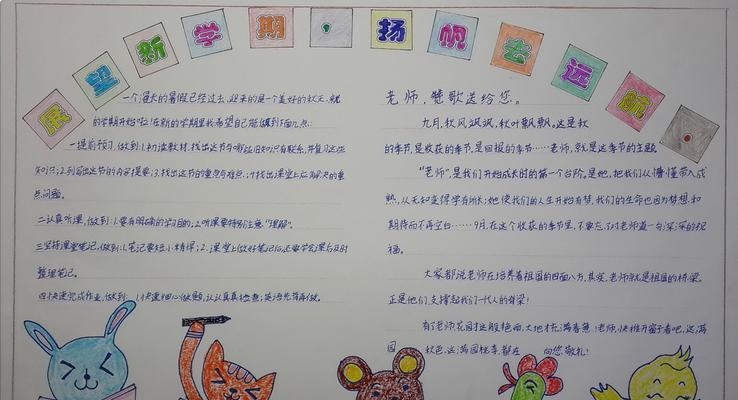 展望新学期，扬帆去远航。
一个漫长的暑假已经过去，迎来的是一个美好的秋天，新
的学期开始啦！在新的学期里我希望自己能做到下面几点：
一提前预习，做到：1.初读教材，找出这节与哪些旧知识有联系，并复习这些
知识；2.列写出这节的内容提要；3.找出这节的重点与难点；4.找出课堂上应解决的重
点问题。
二认真听课，做到：1.要有明确的学习目的；2.听课要特别注意"理解"。
三坚持课堂笔记，做到：1.笔记要短小精悍；2.课堂上做好笔记后，还要学会课后及时
整理笔记。
四快速完成作业，做到：1.快速细心做题，认认真真检查；英语先背再做。
老师，赞歌送给您。
九月，秋风飒飒，秋叶飘飘。这是秋
的季节，是收获的季节，是回报的季节……老师，就是这季节的主题
"老师"，是我们开始成长时的第一个台阶。是她，把我们从懵懂带入成
熟，从无知变得学有所长；她使我们的人生开始有梦，我们的生命也因为梦想和
期待而不再空白……9月，在这个收获的季节里，不要忘了对老师道一句深深的祝
福。
大家都说老师在培养着祖国的四面八方，其实，老师就是祖国的桥梁。
正是他们，支撑起我们一代人的脊梁！
有了老师花园才这般艳丽，大地才充满春意！老师，快推开窗子看吧，这满
园 秋色，这满园桃李，都在 向您敬礼！